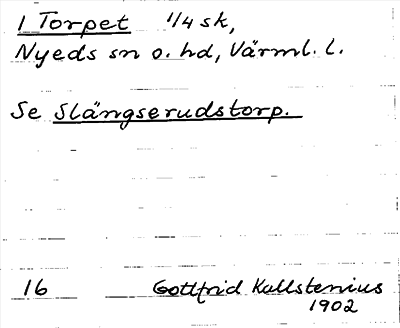 1 Torpet 1/4 sk,
Nyeds sn o. hd, Värml. l.
Se Slängserudstorp.
16 Gottfrid Kallstenius
1902